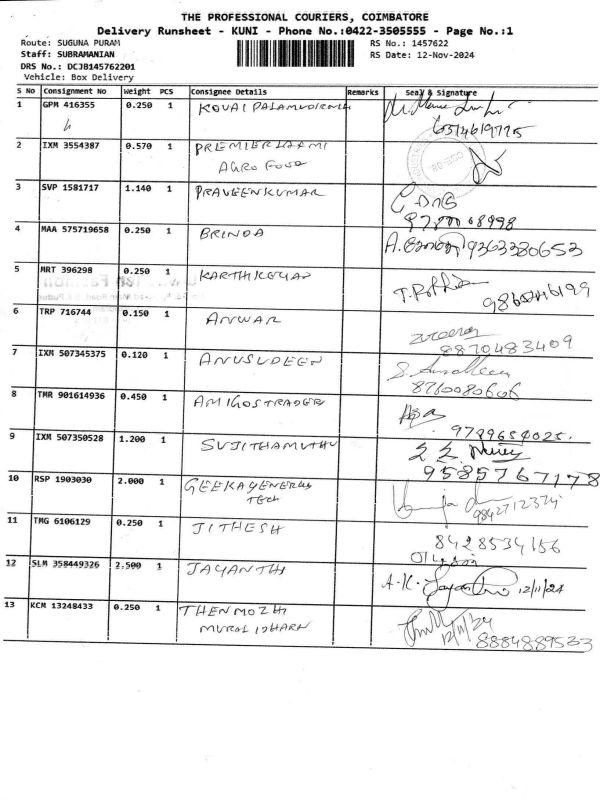 THE PROFESSIONAL COURIERS, COIMBATORE
Delivery Runsheet - KUNI - Phone No.:0422-3505555 - Page No.:1
Route: SUGUNA PURAM
RS No.: 1457622
Staff: SUBRAMANIAN
RS Date: 12-Nov-2024
DRS No.: DCJB145762201
Vehicle: Box Delivery
S No Consignment No Weight PCS Consignee Details Remarks Seal & Signature
1 GPM 416355 0.250 1 KOVAI PALAMUDIRNLA
6374619775
2 IXM 3554387 0.570 1 PREMIER LAXMI
AGRO FOOD
3 SVP 1581717 1.140 1 PRAVEENKUMAR
4 MAA 575719658 0.250 1 BRINDA 9363380653
5 MRT 396298 0.250 1 KARTHIKEYAN
6 TRP 716744 0.150 1 ANWAR
8870483409
7 IXM 507345375 0.120 1 ANUSUDEEN
8760080606
8 TMR 901614936 0.450 1 AMIGOS TRADER
9799654025.
9 IXM 507350528 1.200 1 SUJITHAMUTHU
9585767178
10 RSP 1903030 2.000 1 GEEKAY ENERGY
TECH
9842712374
11 TMG 6106129 0.250 1 JITHESH
8428534156
12 SLM 358449326 2.500 1 JAYANTHI
A-K. 12/11/24
13 KCM 13248433 0.250 1 THENMOZHI
MURALIDHARN 12/11/24
8884889533